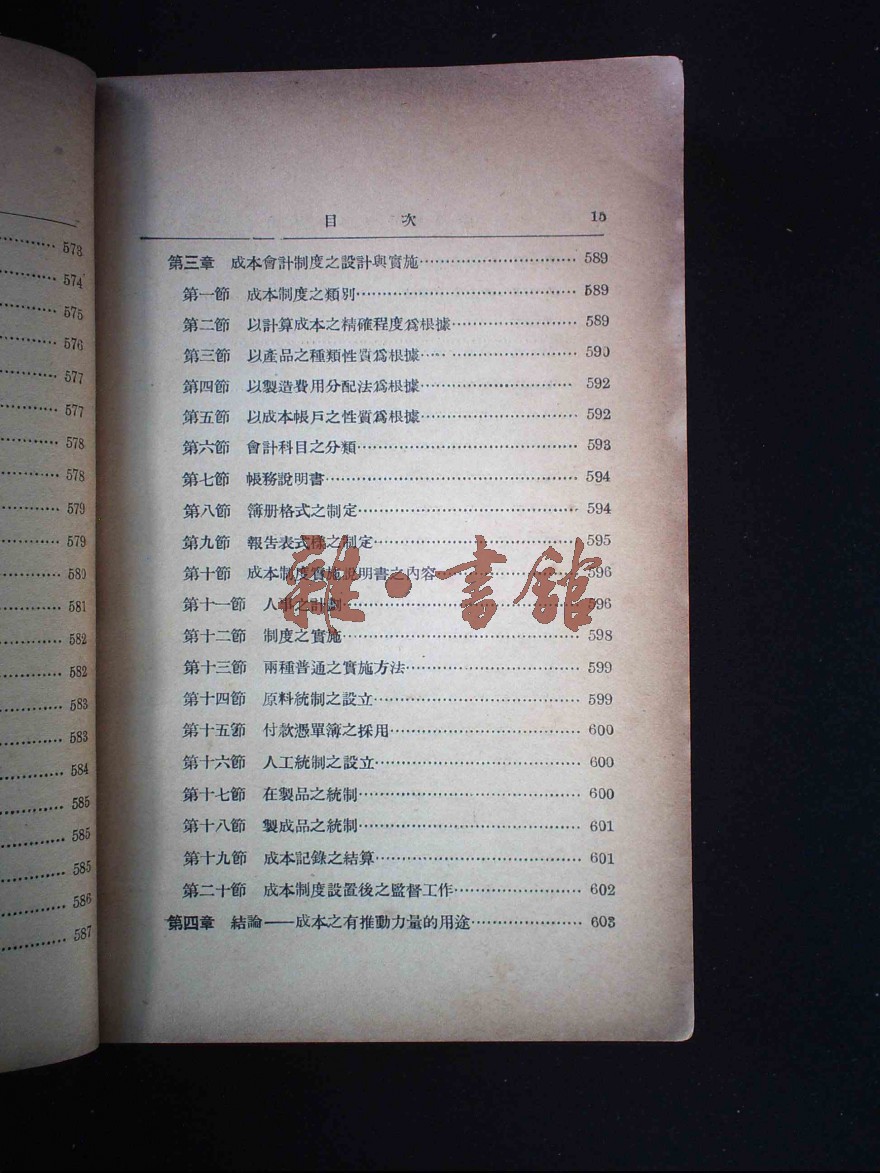 573
574
575
576
577
577
578
578
579
579
580
581
582
582
583
583
584
585
585
585
586
587
目 次 15
第三章 成本會計制度之設計與實施 589
第一節 成本制度之類別 589
第二節 以計算成本之精確程度爲根據 589
第三節 以產品之種類性質爲根據 590
第四節 以製造費用分配法爲根據 592
第五節 以成本帳戶之性質爲根據 592
第六節 會計科目之分類 593
第七節 帳務說明書 594
第八節 簿册格式之制定 594
第九節 報告表式樣之制定 595
第十節 成本制度實施說明書之內容 596
第十一節 人事之計劃 596
第十二節 制度之實施 598
第十三節 兩種普通之實施方法 599
第十四節 原料統制之設立 599
第十五節 付款憑單簿之採用 600
第十六節 人工統制之設立 600
第十七節 在製品之統制 600
第十八節 製成品之統制 601
第十九節 成本記錄之結算 601
第二十節 成本制度設置後之監督工作 602
第四章 結論——成本之有推動力量的用途 603
雜·書館